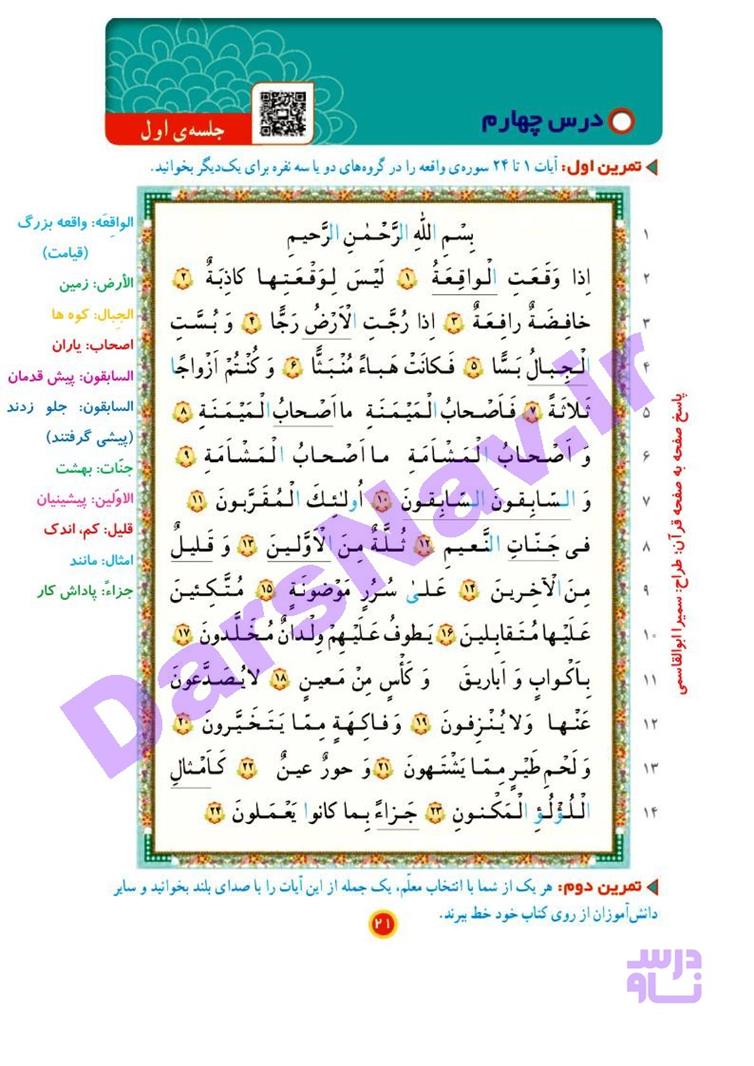 درس چهارم
جلسه‌ی اول
تمرین اول: آیات ۱ تا ۲۴ سوره‌ی واقعه را در گروه‌های دو یا سه نفره برای یک‌دیگر بخوانید.
۱ بِسْمِ اللهِ الرَّحْمٰنِ الرَّحیمِ
۲ اِذا وَقَعَتِ الْواقِعَةُ ۱ لَیْسَ لِوَقْعَتِها کاذِبَةٌ ۲
۳ خافِضَةٌ رافِعَةٌ ۳ اِذا رُجَّتِ الْاَرْضُ رَجًّا ۴ وَ بُسَّتِ
۴ الْجِبالُ بَسًّا ۵ فَکانَتْ هَباءً مُنْبَثًّا ۶ وَ کُنْتُمْ اَزْواجًا
۵ ثَلاثَةً ۷ فَاَصْحابُ الْمَیْمَنَةِ ما اَصْحابُ الْمَیْمَنَةِ ۸
۶ وَ اَصْحابُ الْمَشْاَمَةِ ما اَصْحابُ الْمَشْاَمَةِ ۹
۷ وَ السّابِقونَ السّابِقونَ ۱۰ اُولٰئِكَ الْمُقَرَّبونَ ۱۱
۸ فی جَنّاتِ النَّعیمِ ۱۲ ثُلَّةٌ مِنَ الْاَوَّلینَ ۱۳ وَ قَلیلٌ
۹ مِنَ الْآخِرینَ ۱۴ عَلیٰ سُرُرٍ مَوْضونَةٍ ۱۵ مُتَّکِئینَ
۱۰ عَلَیْها مُتَقابِلینَ ۱۶ یَطوفُ عَلَیْهِمْ وِلْدانٌ مُخَلَّدونَ ۱۷
۱۱ بِاَکْوابٍ وَ اَباریقَ وَ کَأْسٍ مِنْ مَعینٍ ۱۸ لا یُصَدَّعونَ
۱۲ عَنْها وَ لا یُنْزِفونَ ۱۹ وَ فاکِهَةٍ مِمّا یَتَخَیَّرونَ ۲۰
۱۳ وَ لَحْمِ طَیْرٍ مِمّا یَشْتَهونَ ۲۱ وَ حورٌ عینٌ ۲۲ کَاَمْثالِ
۱۴ اللُّؤْلُؤِ الْمَکْنونِ ۲۳ جَزاءً بِما کانوا یَعْمَلونَ ۲۴
الواقِعَه: واقعه بزرگ
(قیامت)
الأرض: زمین
الجِبال: کوه ها
اصحاب: یاران
السابقون: پیش قدمان
السابقون: جلو زدند
(پیشی گرفتند)
جنّات: بهشت
الاوّلین: پیشینیان
قلیل: کم، اندک
امثال: مانند
جزاءً: پاداش کار
پاسخ صفحه به صفحه قرآن: طراح: سمیرا ابوالقاسمی
تمرین دوم: هر یک از شما با انتخاب معلّم، یک جمله از این آیات را با صدای بلند بخوانید و سایر
دانش‌آموزان از روی کتاب خود خط ببرند.
۲۱
DarsNav.ir
درس
ناو